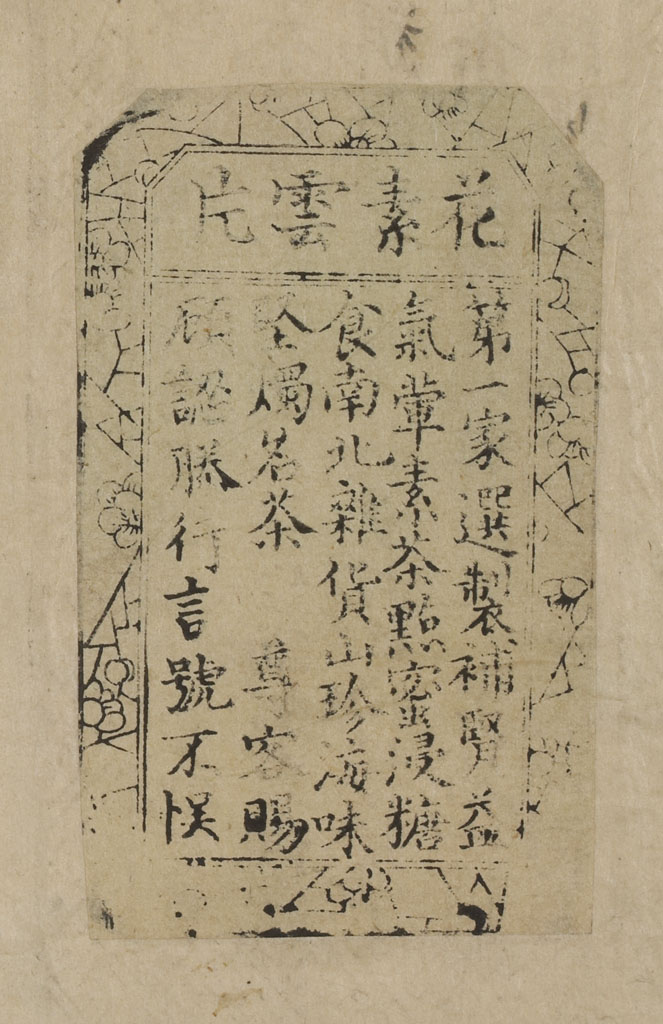 花素雲片
第一家選製補腎益
氣葷素茶點蜜浸糖
食南北雜貨山珍海味
坚燭名茶 尊客賜
顧認勝行言號不悮